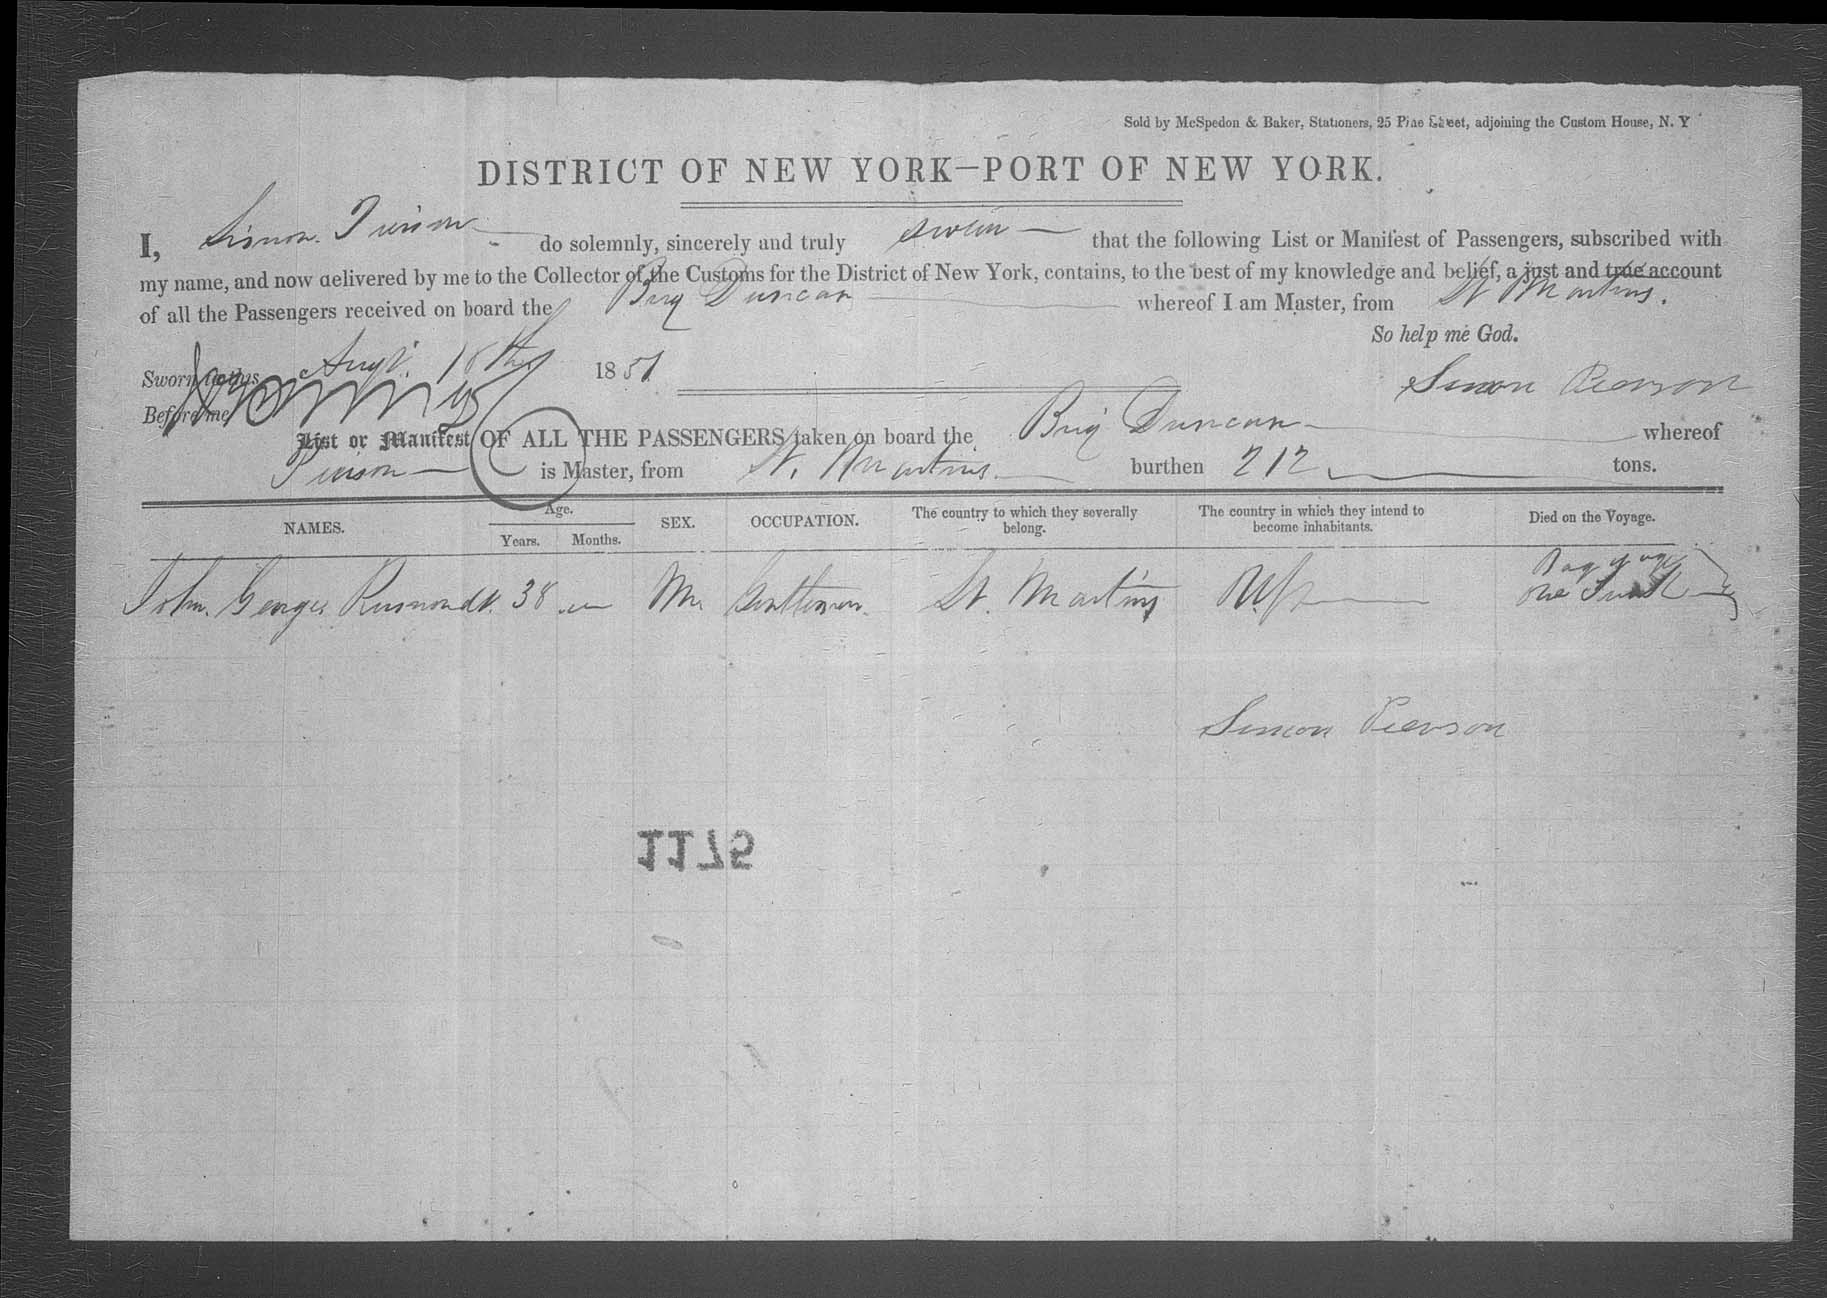 Sold by McSpedon & Baker, Stationers, 25 Pine Street, adjoining the Custom House, N. Y
DISTRICT OF NEW YORK—PORT OF NEW YORK.
I, Simon Pierson do solemnly, sincerely and truly swear that the following List or Manifest of Passengers, subscribed with
my name, and now delivered by me to the Collector of the Customs for the District of New York, contains, to the best of my knowledge and belief, a just and true account
of all the Passengers received on board the Brig Duncan whereof I am Master, from St Martins.
So help me God.
Sworn to this Augt. 18th 1851
Simon Pierson
Before me
List or Manifest OF ALL THE PASSENGERS taken on board the Brig Duncan whereof
Pierson is Master, from St. Martins burthen 212 tons.
NAMES. Age. Years. Months. SEX. OCCUPATION. The country to which they severally belong. The country in which they intend to become inhabitants. Died on the Voyage.
Baggage
John George 38 M Gentleman. St. Martins one Trunk
Simon Pierson
1175